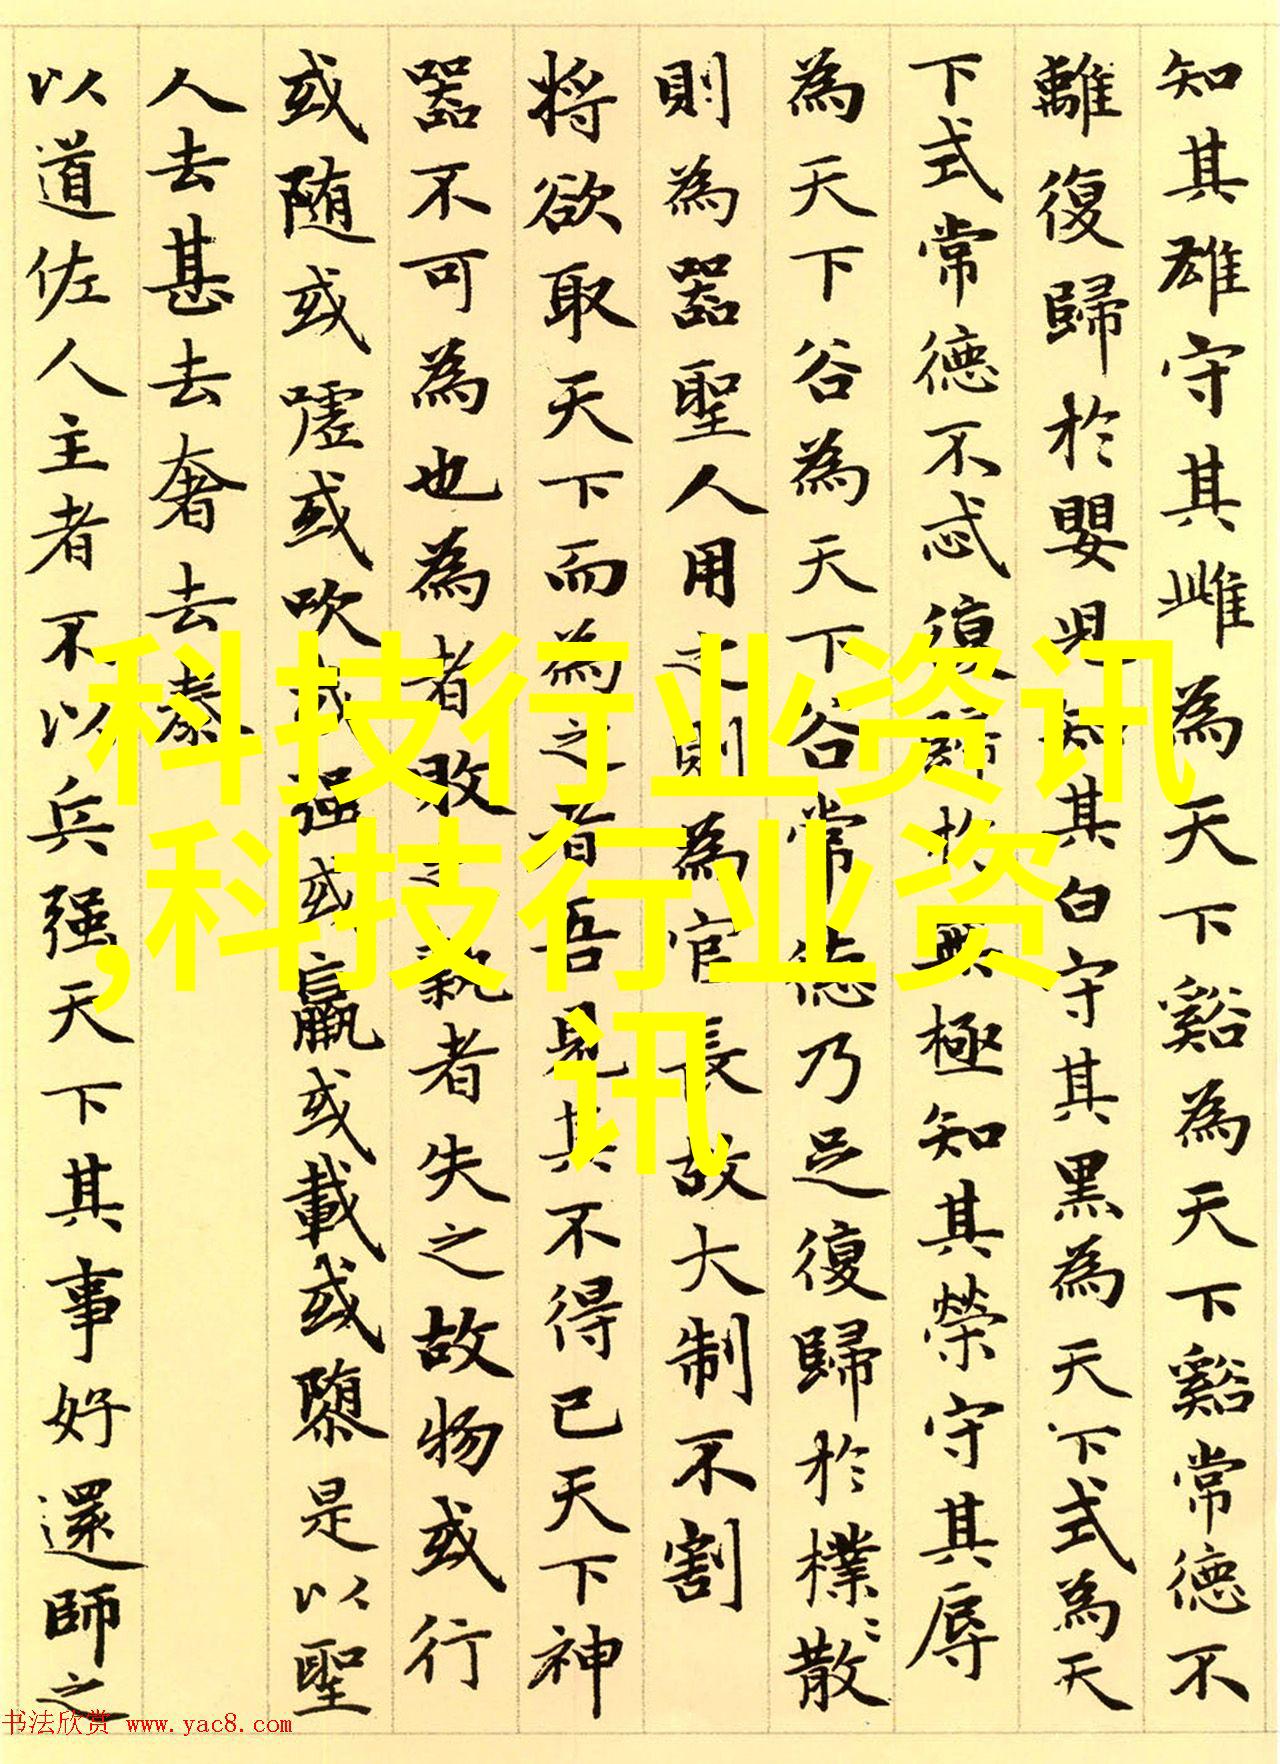 知其雄守其雌為天下谿為天下谿常德不
離復歸於嬰兒知其白守其黑為天下式為天
下式常德不忒復歸於無極知其榮守其辱
為天下谷為天下谷常德乃足復歸於樸〻散
則為器聖人用之則為官長故大制不割
将欲取天下而為之者吾見其不得已天下神
器不可為也為者敗之執者失之故物或行
或随或嘘或吹或强或羸或載或隳是以聖
人去甚去奢去泰
以道佐人主者不以兵强天下其事好還師之
科技行业资讯
,科技行业资
讯
书法欣赏 www.yac8.com